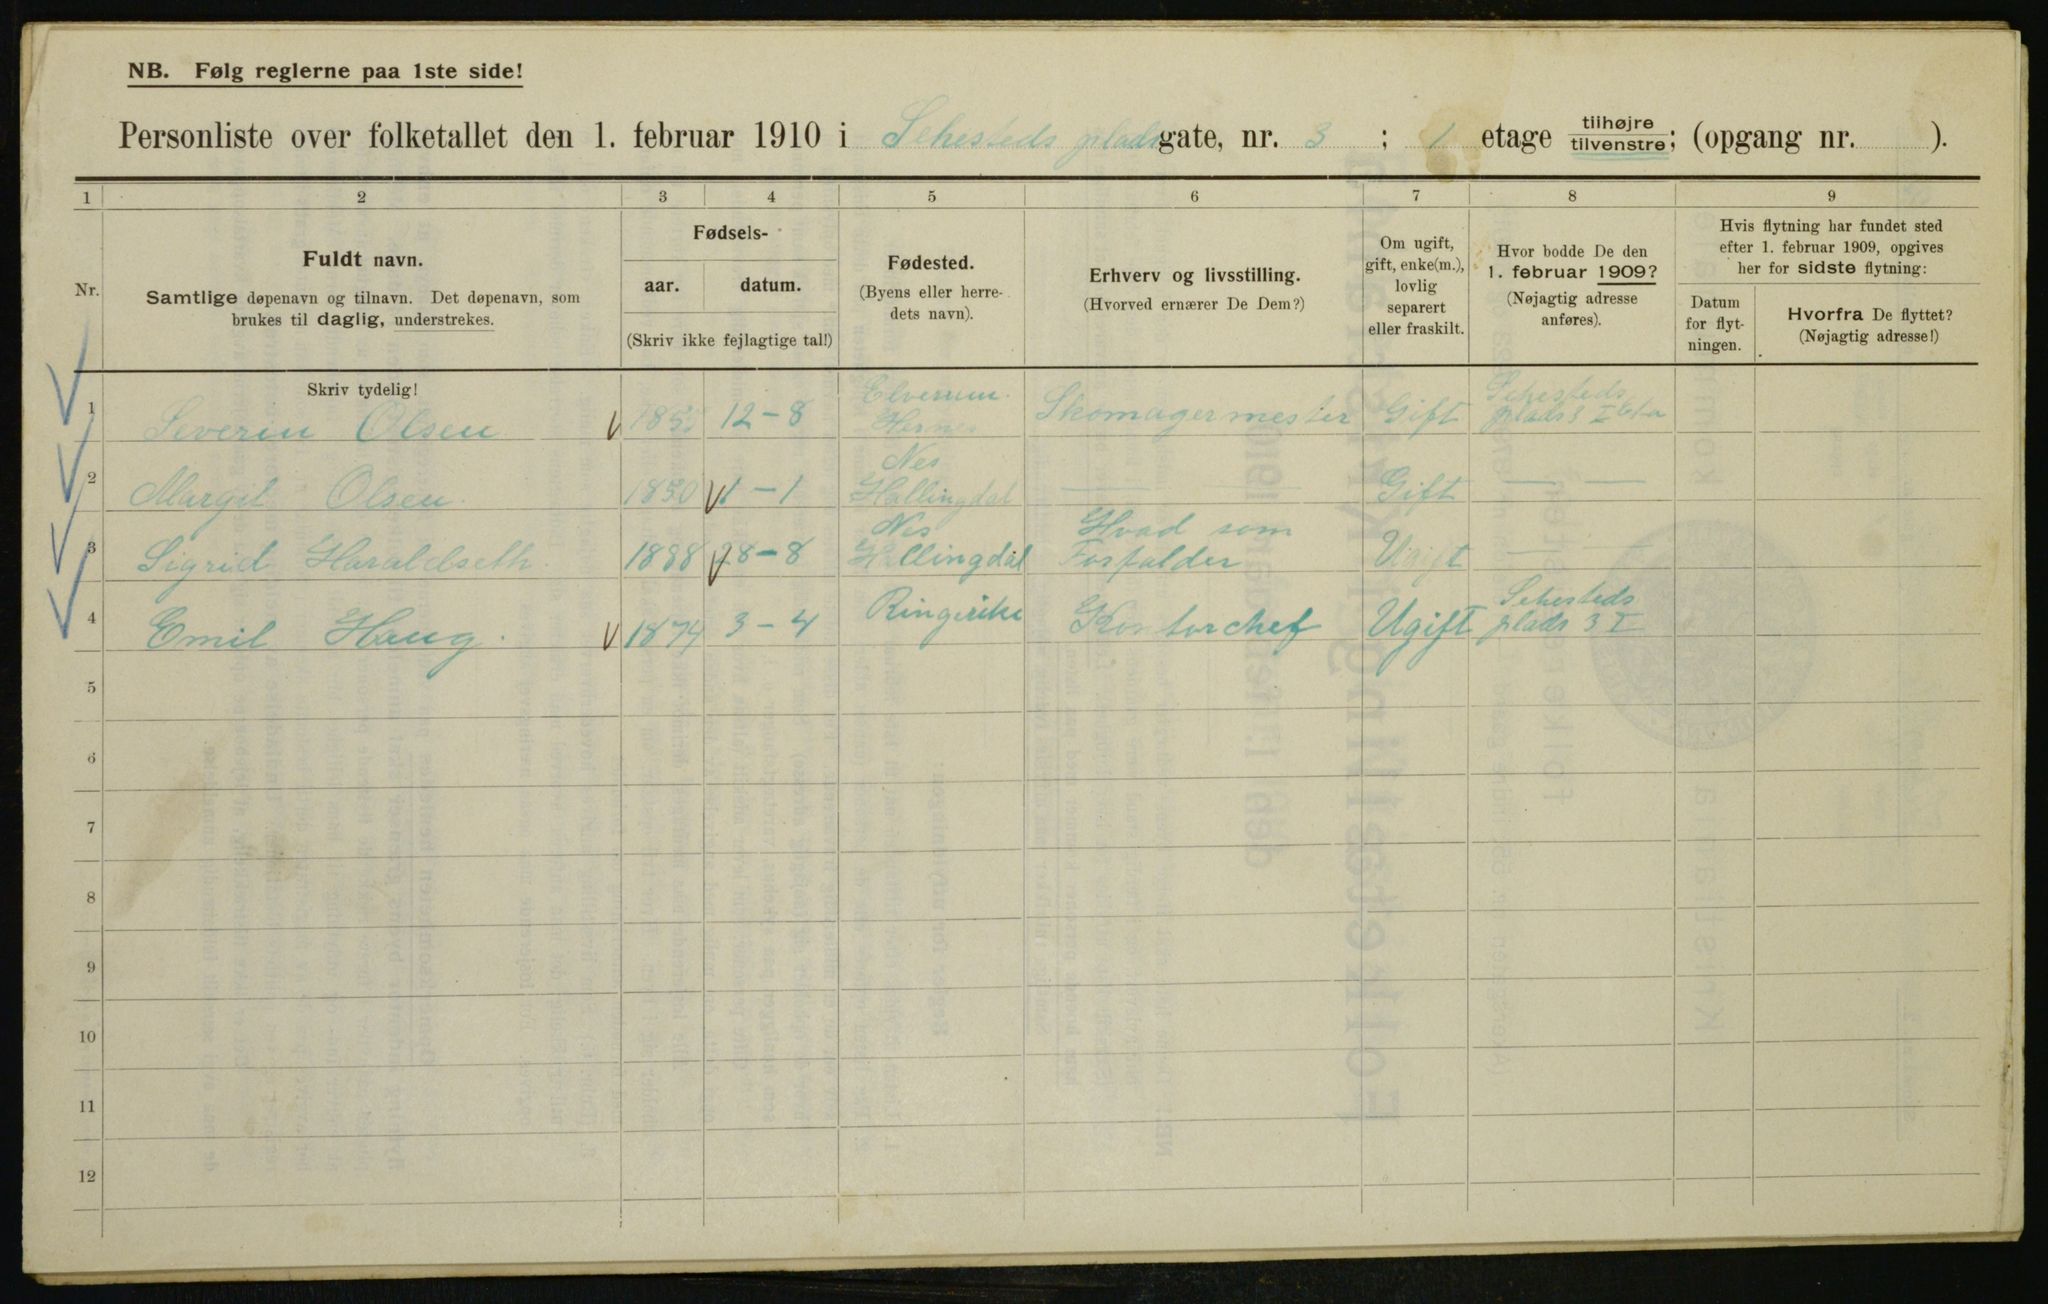 NB. Følg reglerne paa 1ste side!
Personliste over folketallet den 1. februar 1910 i Sehesteds plads gate, nr. 3 ; 1 etage tilhøjre tilvenstre; (opgang nr. ).
1 2 3 4 5 6 7 8 9
Nr.
Fuldt navn.
Samtlige døpenavn og tilnavn. Det døpenavn, som
brukes til daglig, understrekes.
Fødsels-
aar. datum.
(Skriv ikke fejlagtige tal!)
Fødested.
(Byens eller herre-
dets navn).
Erhverv og livsstilling.
(Hvorved ernærer De Dem?)
Om ugift,
gift, enke(m.),
lovlig
separert
eller fraskilt.
Hvor bodde De den
1. februar 1909?
(Nøjagtig adresse
anføres).
Hvis flytning har fundet sted
efter 1. februar 1909, opgives
her for sidste flytning:
Datum
for flyt-
ningen.
Hvorfra De flyttet?
(Nøjagtig adresse!)
Skriv tydelig!
1 Severin Olsen 12-8 Elverum Hernes Skomagermester Gift Sehesteds plads 3 I
2 Margit Olsen 1850 1-1 Nes Hallingdal — — Gift — —
3 Sigrid Haraldseth 1888 28-8 Nes Hallingdal Hvad som Forfalder Ugift — —
4 Emil Haug 1874 3-4 Ringerike Kontorchef Ugift Sehesteds plads 3 I
5
6
7
8
9
10
11
12